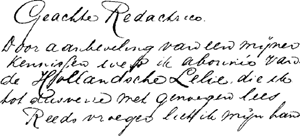 Geachte Redactrice.
Door aanbeveling van een mijner
kennissen werd ik abonné van
de Hollandsche Lelie, die ik
tot dusverre met genoegen lees
Reeds vroeger liet ik mijn han